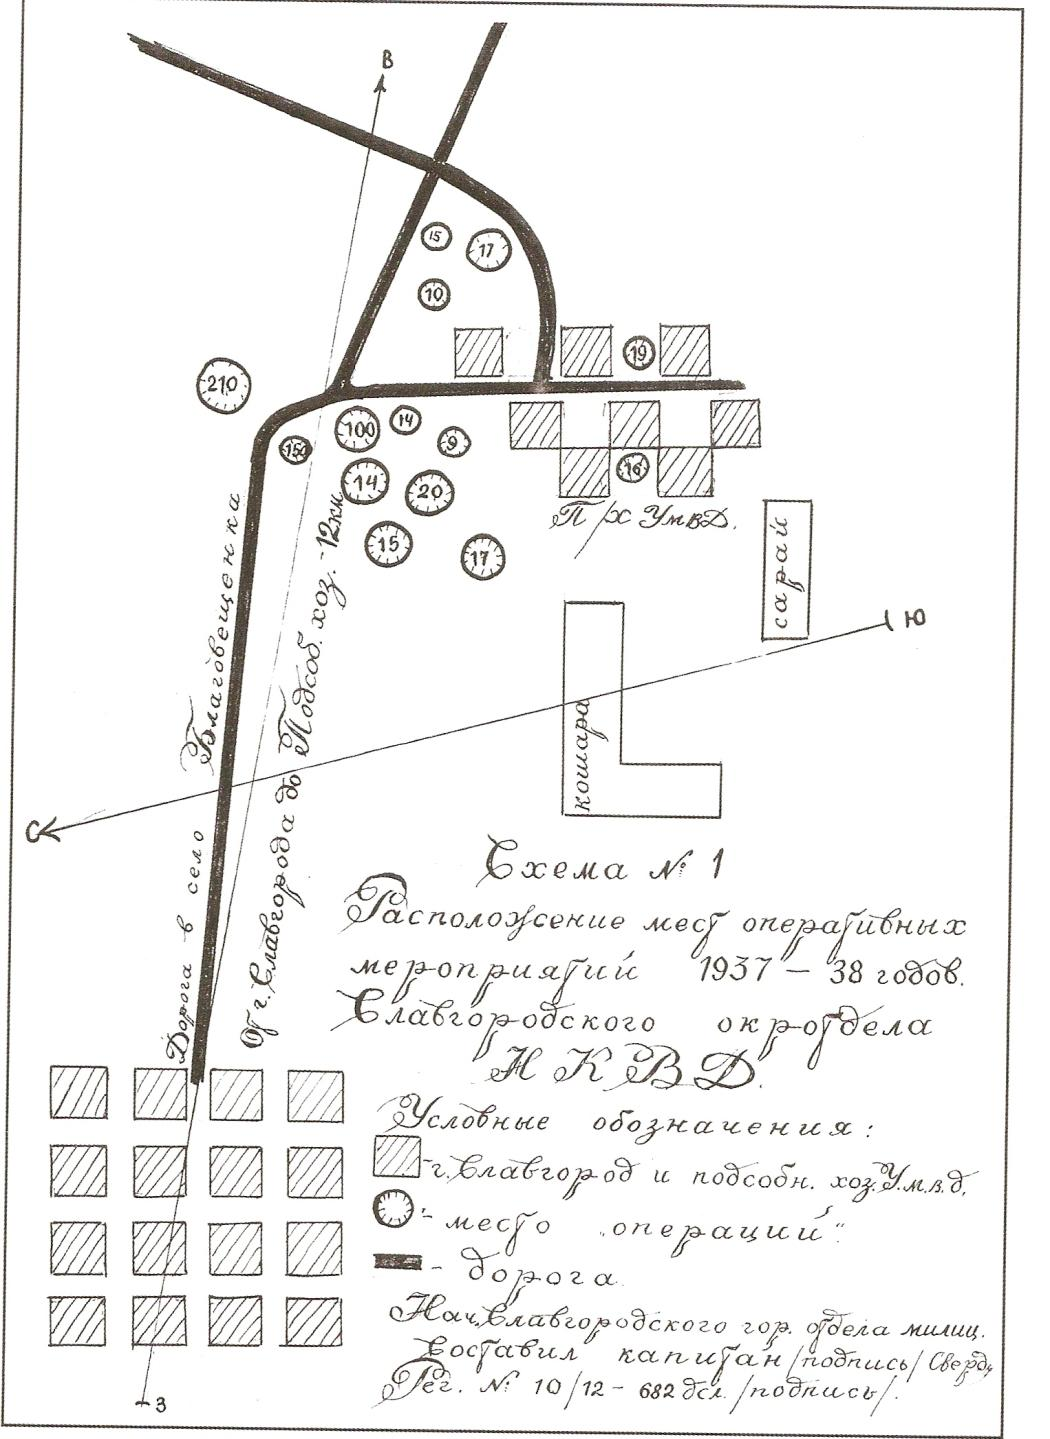 В
15
17
10
19
210
100
14
9
150
14
20
16
15
17
П/х УмвД.
сарай
Ю
кошара
С
Дорога в село Благовещенка
От г. Славгорода до Подсоб. хоз. -12км
Схема № 1
Расположение мест оперативных
мероприятий 1937 – 38 годов.
Славгородского окротдела
НКВД.
Условные обозначения:
-г. Славгород и подсобн. хоз. У.м.в.д.
- место „операций“
- дорога
Нач. Славгородского гор. отдела милиц.
Составил капитан /подпись/
Рег. № 10/12 - 682 дсл. /подпись/.
З